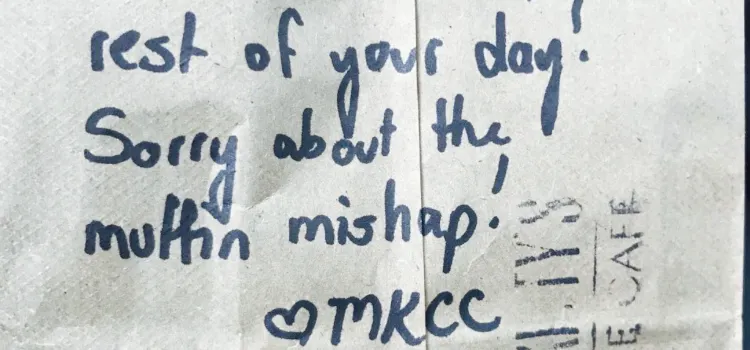 rest of your day!
Sorry about the
muffin mishap!
♡MKCC